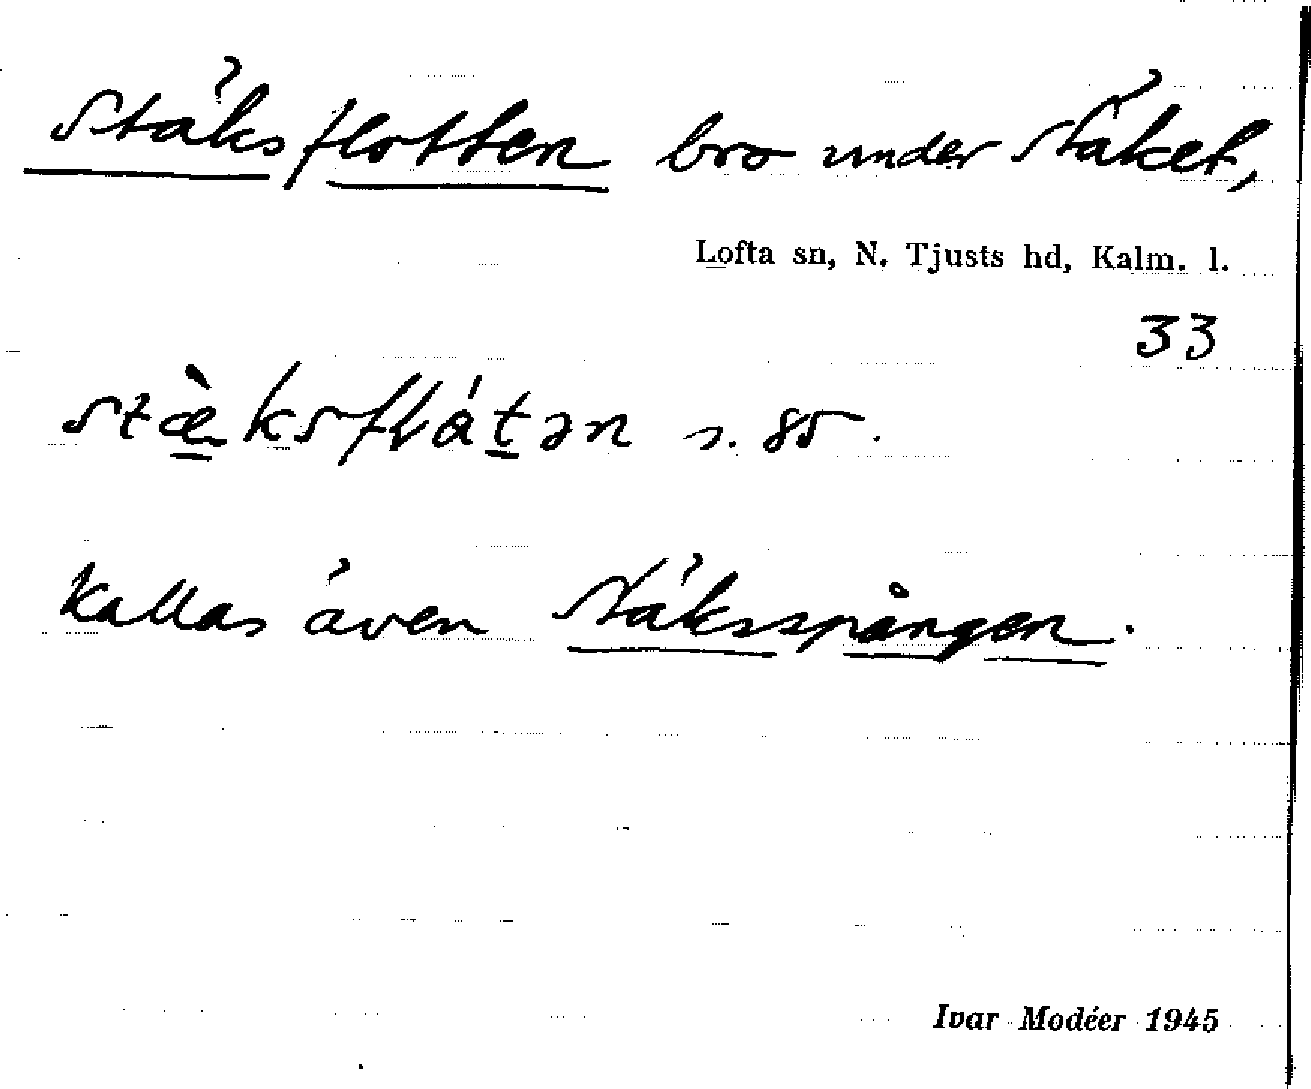 Stäksflotten bro under Stäket,
Lofta sn, N. Tjusts hd, Kalm. l.
33
stæ̀ksflátən s. 85.
kallas även Stäksspången.
Ivar Modéer 1945